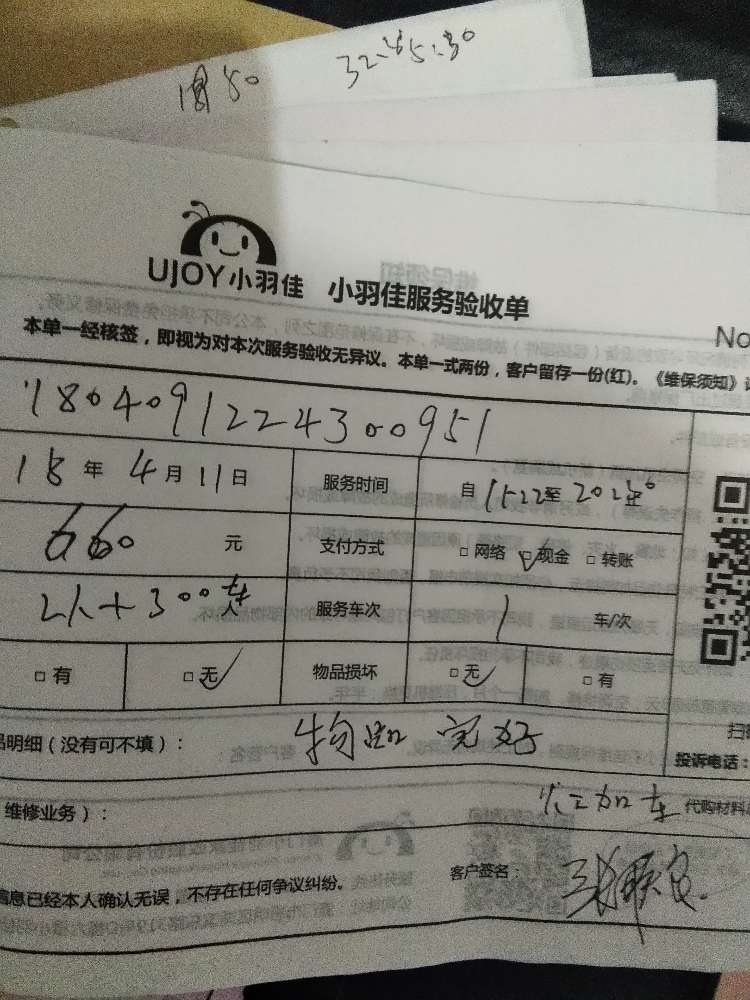 32.45.30
UJOY小羽佳 小羽佳服务验收单
No
本单一经核签，即视为对本次服务验收无异议。本单一式两份，客户留存一份(红)。《维保须知》
1804091224300951
18年4月11日 服务时间 自
660元 支付方式 □网络 ☑现金 □转账
2人+300车 人 服务车次 1 车/次
□有 □无✓ 物品损坏 □无✓ □有
品明细（没有可不填）： 物品完好
投诉电话：
维修业务）： 加车 代购材料
信息已经本人确认无误，不存在任何争议纠纷。 客户签名：